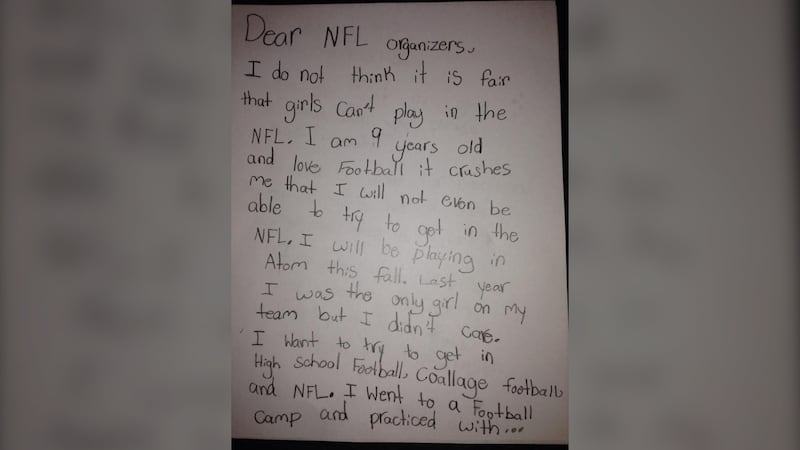 Dear NFL organizers,
I do not think it is fair
that girls can't play in the
NFL. I am 9 years old
and love Football it crushes
me that I will not even be
able to try to get in the
NFL. I will be playing in
Atom this fall. Last year
I was the only girl on my
team but I didn't care.
I want to try to get in
High school Football, Coallage football,
and NFL. I went to a Football
camp and practiced with...